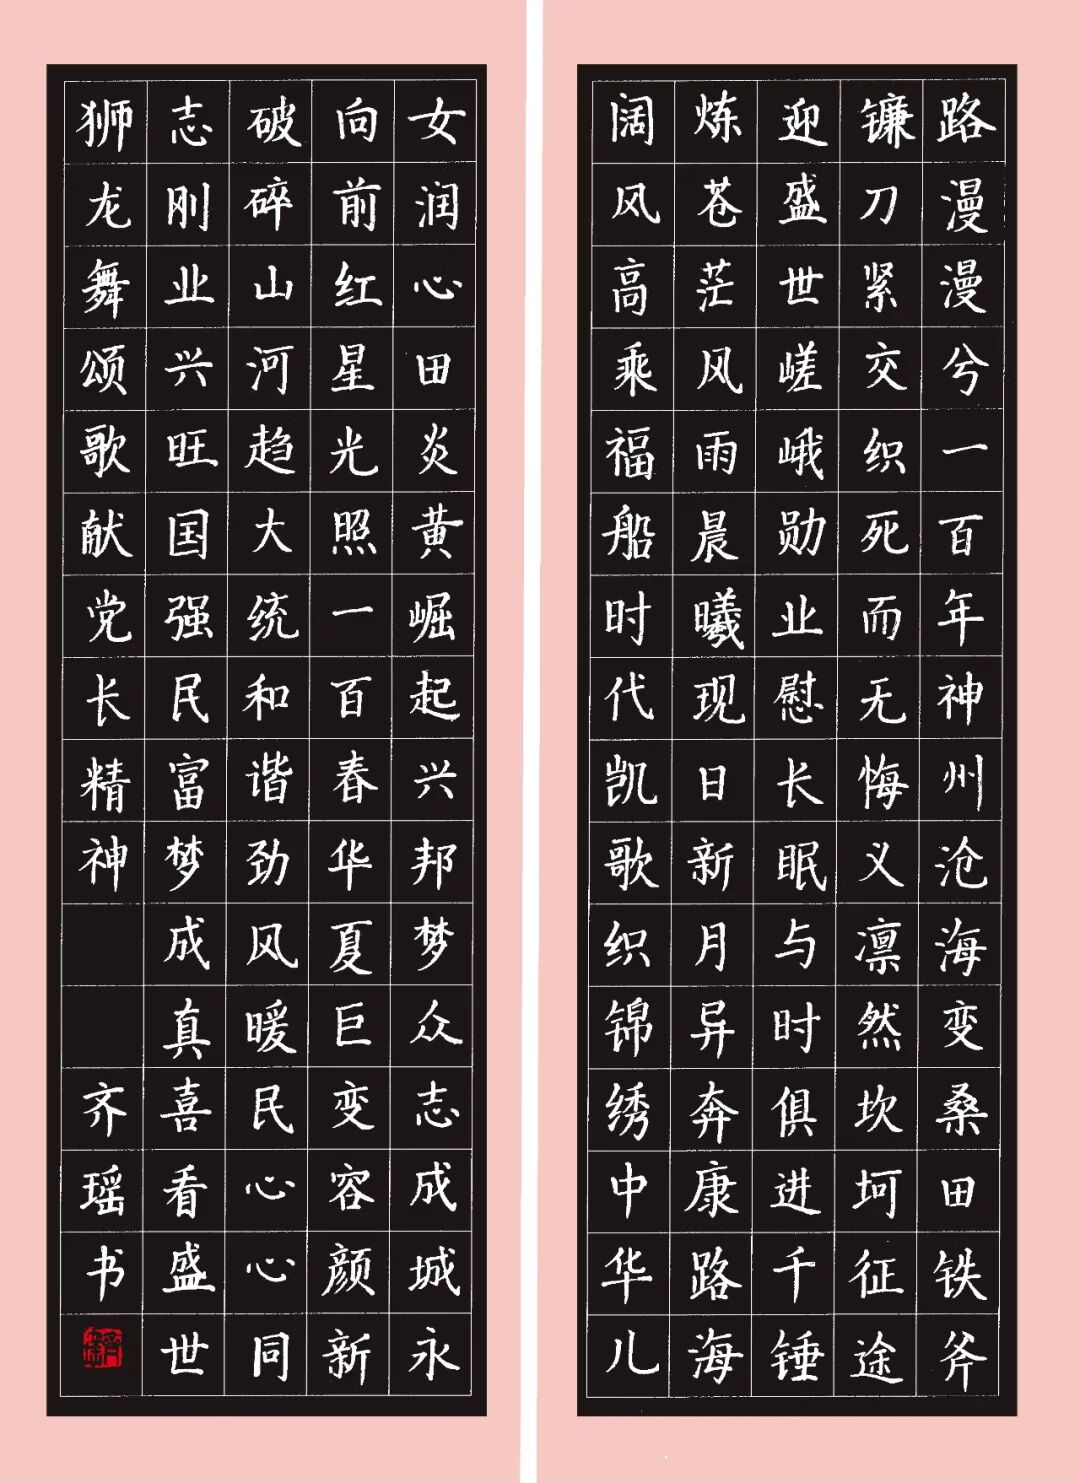 路漫漫兮一百年神州沧海变桑田铁斧
镰刀紧交织死而无悔义凛然坎坷征途
迎盛世嵯峨勋业慰长眠与时俱进千锤
炼苍茫风雨晨曦现日新月异奔康路海
阔风高乘福船时代凯歌织锦绣中华儿
女润心田炎黄崛起兴邦梦众志成城永
向前红星光照一百春华夏巨变容颜新
破碎山河趋大统和谐劲风暖民心心同
志刚业兴旺国强民富梦成真喜看盛世
狮龙舞颂歌献党长精神 齐瑶书